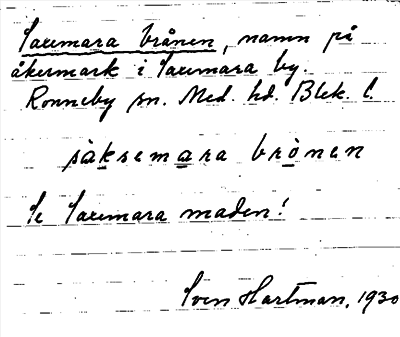 Saxemara brånen, namn på
åkermark i Saxemara by.
Ronneby sn. Med. hd. Blek. l.
sàksemara brònen
Se Saxemara maden!
Sven Hartman, 1930